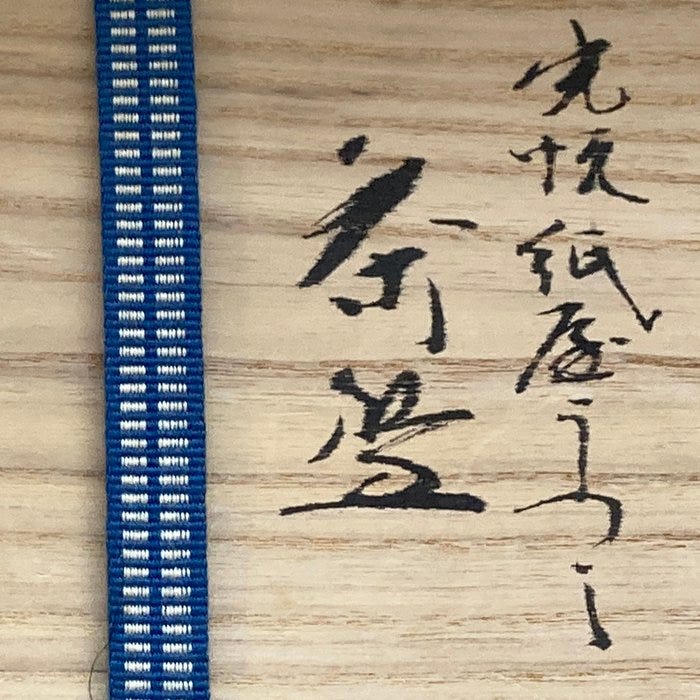 光悦紙屋うつし
茶盌